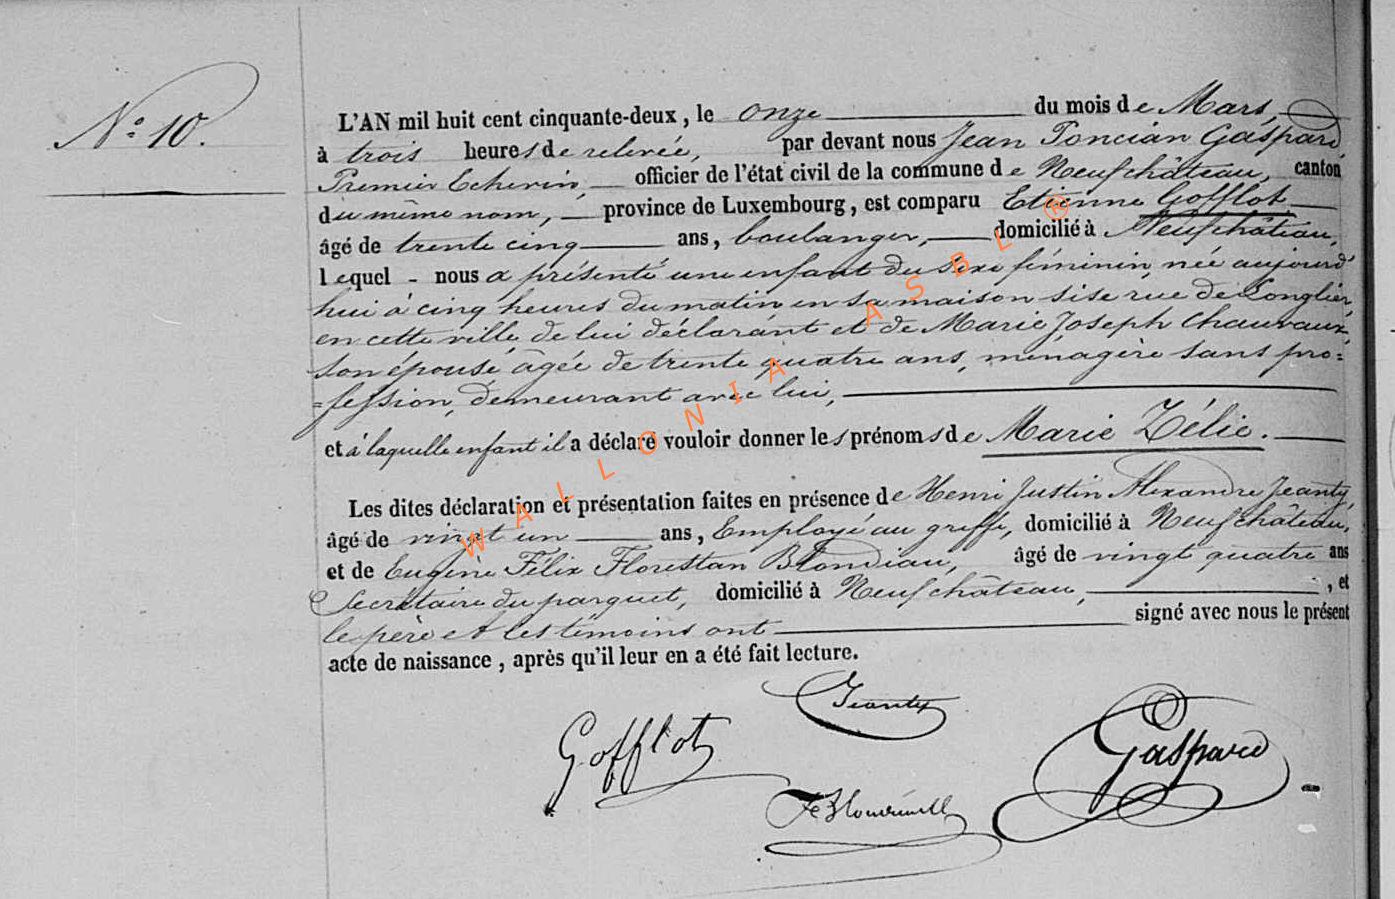 N° 10.
L'AN mil huit cent cinquante-deux, le onze du mois de Mars,
à trois heures de relevée, par devant nous Jean Poncian Gaspard
Premier Echevin, officier de l'état civil de la commune de Neufchâteau, canton
du même nom, province de Luxembourg, est comparu Etienne Gofflot
âgé de trente cinq ans, boulanger, domicilié à Neufchâteau,
lequel - nous a présenté une enfant du sexe féminin, née aujourd'
hui à cinq heures du matin en sa maison sise rue de Longlier,
en cette ville, de lui déclarant et de Marie Joseph Chauvaux,
son épouse âgée de trente quatre ans, ménagère sans pro=
=fession, demeurant avec lui,
et à laquelle enfant il a déclaré vouloir donner les prénoms de Marie Zélie.
Les dites déclaration et présentation faites en présence de Henri Justin Alexandre Jeanty,
âgé de vingt un ans, Employé au greffe, domicilié à Neufchâteau,
et de Eugène Félix Florestan Blondiau, âgé de vingt quatre ans
Secrétaire du parquet, domicilié à Neufchâteau, , et
le père et les témoins ont signé avec nous le présent
acte de naissance, après qu'il leur en a été fait lecture.
Jeanty
Gofflot
Gaspard
WALLONIA ASBL ®